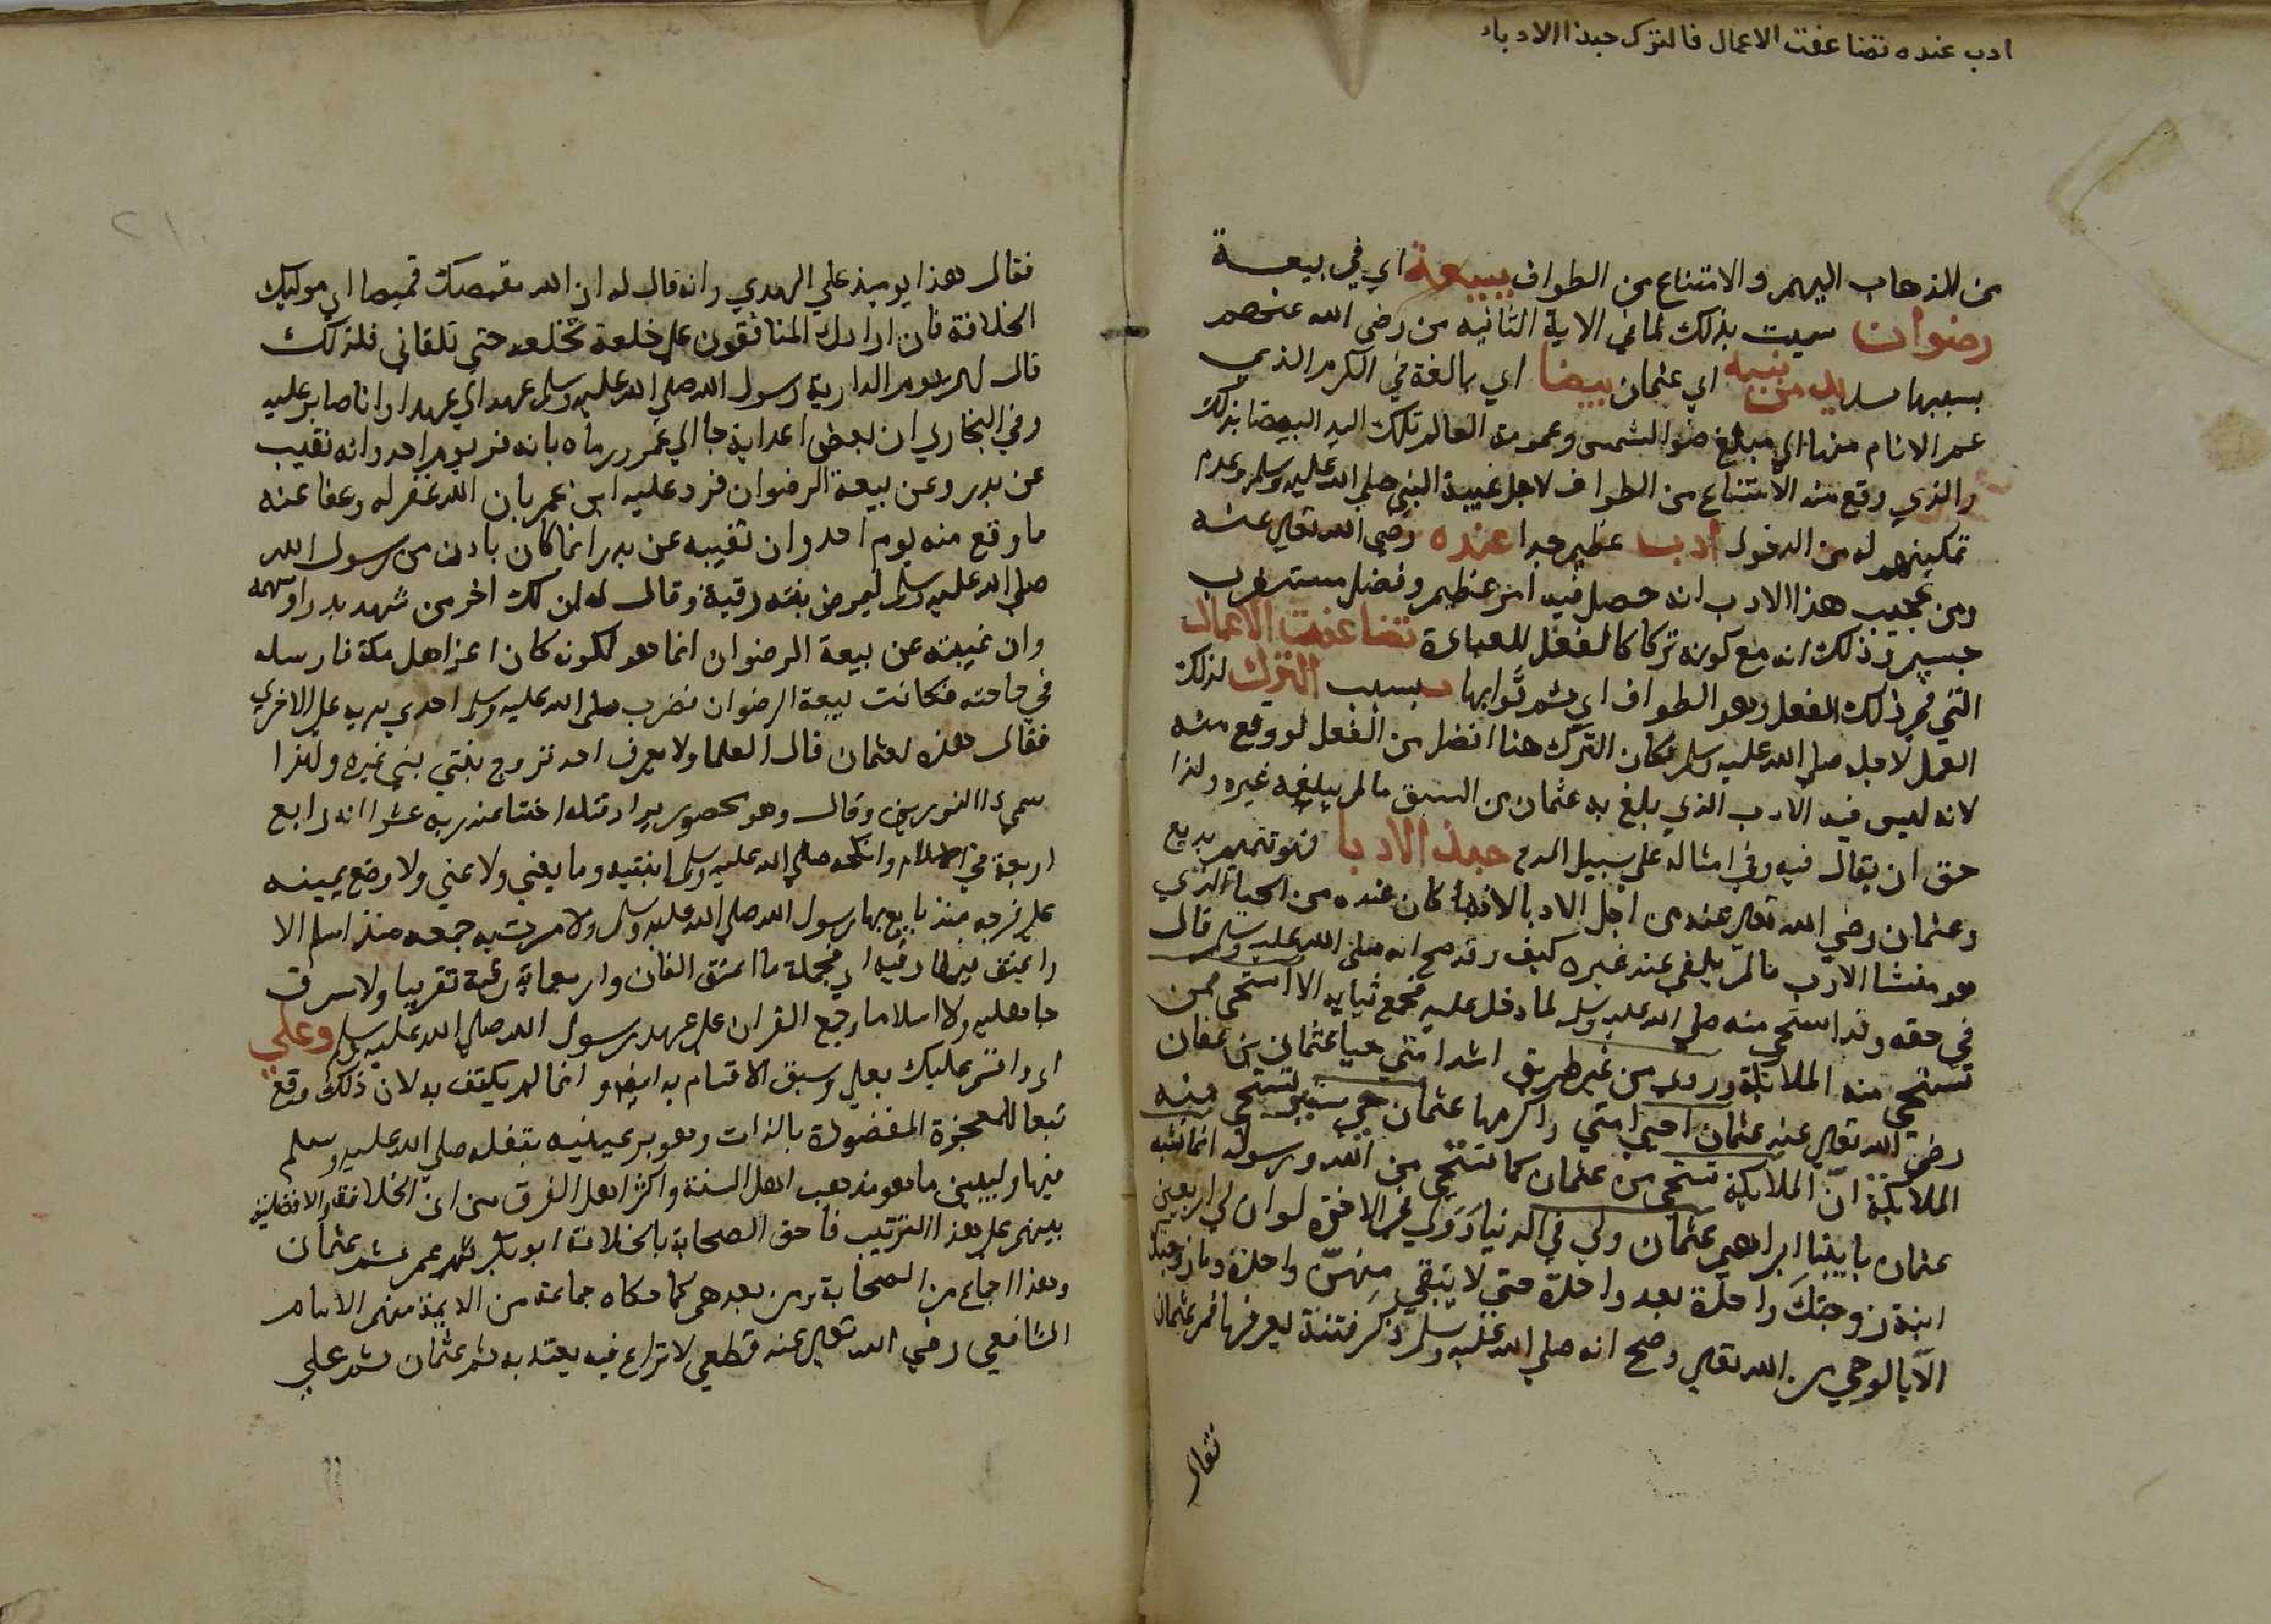 ادب عنده تضاعفت الاعمال فالترك حبذا الادباء
من الذهاب اليهم والامتناع من الطواف ببيعة اي في بيعة
رضوان سميت بذلك لما في الاية الثانيه من رضي الله عنهم
بسببها يد من نبيه اي عثمان بيضا اي بالغة في الكرم الذي
عم الانام منها الي مبلغ ضوا الشمس وعمومه العالم تلك اليد البيضا بذلك
والذي وقع منه الامتناع من الطواف لاجل غيبة النبي صلي الله عليه وسلم وعدم
تمكينهم له من الدخول ادب عظيم جدا عنده رضي الله تعالي عنه
ومن عجيب هذا الادب انه حصل فيه امر عظيم وفضل مستغرب
جسيم وذلك انه مع كونه تركا كالفعل للعبادة تضاعفت الاعمال
التي في ذلك الفعل وهو الطواف اي ثم ثوابها بسبب الترك لذلك
العمل لاجله صلي الله عليه وسلم فكان الترك هنا افضل من الفعل لو وقع منه
لانه ليس فيه الادب الذي بلغ به عثمان من السبق مالم يبلغه غيره ولذا
حق ان يقال فيه وفي امثاله علي سبيل المدح حبذا الادبا فهو تتميم بديع
وعثمان رضي الله تعالي عنه من اجل الادبا لانه كان عنده من الحيا الذي
هو منشا الادب مالم يلفي عند غيره كيف وقد صح انه صلي الله عليه وسلم قال
في حقه وقد استحي منه صلي الله عليه وسلم لما دخل عليه فجمع ثيابه الا استحي ممن
تستحي منه الملايكة وروي من غير طريق اشد امتي حيا عثمان بن عفان
رضي الله تعالي عنه عثمان احيي امتي واكرمها عثمان حيي ستير تستحي منه
الملايكة ان الملايكة تستحي من عثمان كما تستحي من الله ورسوله انما نشبه
عثمان بابينا ابراهيم عثمان ولي في الدنيا وولي في الاخرة لو ان لي اربعين
ابنة زوجتك واحدة بعد واحدة حتي لا يبقي منهن واحدة وما زوجتك
الا بالوحي من الله تعالي وصح انه صلي الله عليه وسلم ذكر فتنة يعرفها فمر عثمان
فقال
فقال هذا يوميذ علي الهدي وانه قال له ان الله مقمصك قميصا اي موليك
الخلافة فان ارادك المنافقون علي خلعه فلا تخلعه حتي تلقاني فلذلك
قال لهم يوم الدار ان رسول الله صلي الله عليه وسلم عهد الي عهدا وانا صابر عليه
وفي البخاري ان بعض اعدايه جا الي ابن عمر ورماه بانه فر يوم احد وانه تغيب
عن بدر وعن بيعة الرضوان فرد عليه ابن عمر بان الله غفر له وعفا عنه
ما وقع منه يوم احد وان تغيبه عن بدر انما كان باذن من رسول الله
صلي الله عليه وسلم ليمرض بنته رقية وقال له ان لك اجر من شهد بدرا وسهمه
وان غيبته عن بيعة الرضوان انما هو لكونه كان اعز اهل مكة فارسله
في حاجته فكانت بيعة الرضوان فضرب صلي الله عليه وسلم احدي يديه علي الاخري
فقال هذه لعثمان قال العلما ولا يعرف احد تزوج بنتي نبي غيره ولهذا
سمي ذا النورين وقال وهو محصور يراد قتله اختبا عند ربه عشرا انه رابع
اربعة في الاسلام وانكحه صلي الله عليه وسلم ابنتيه وما تغني ولا تمني ولا وضع يمينه
علي فرجه منذ بايع بها رسول الله صلي الله عليه وسلم ولا مرت به جمعه منذ اسلم الا
واعتق فيها رقبة اي فجملة ما اعتق الفان واربعماية رقبة تقريبا ولا سرق
جاهلية ولا اسلاما وجمع القران علي عهد رسول الله صلي الله عليه وسلم وعلي
اي واقسم عليك بعلي وسبق الاقسام به ايضا وانما لم يكتف به لان ذلك وقع
تبعا للمعجزة المقصودة بالذات وهو بر عينيه بتفله صلي الله عليه وسلم
فيها وليبين ما هو مذهب اهل السنة واكثر اهل الفرق من ان الخلافة والافضلية
بينهم علي هذا الترتيب فاحق الصحابة بالخلافة ابو بكر ثم عمر ثم عثمان
وهذا اجماع من الصحابة ومن بعدهم كما حكاه جماعة من الايمة منهم الامام
الشافعي رضي الله تعالي عنه قطعي لا نزاع فيه يعتد به ثم عثمان ثم علي